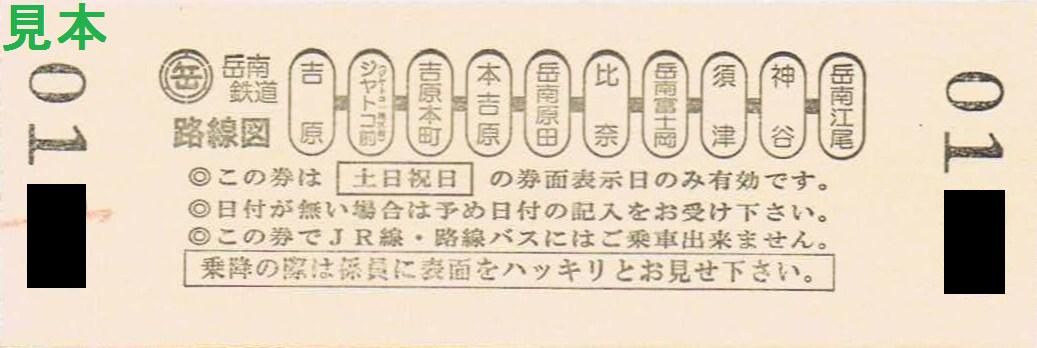 見本
01
岳 岳南鉄道
路線図
吉原
ジヤトコ前
(ジヤトコ1地区前)
吉原本町
本吉原
岳南原田
比奈
岳南富士岡
須津
神谷
岳南江尾
◎この券は 土日祝日 の券面表示日のみ有効です。
◎日付が無い場合は予め日付の記入をお受け下さい。
◎この券でJR線・路線バスにはご乗車出来ません。
乗降の際は係員に表面をハッキリとお見せ下さい。
01